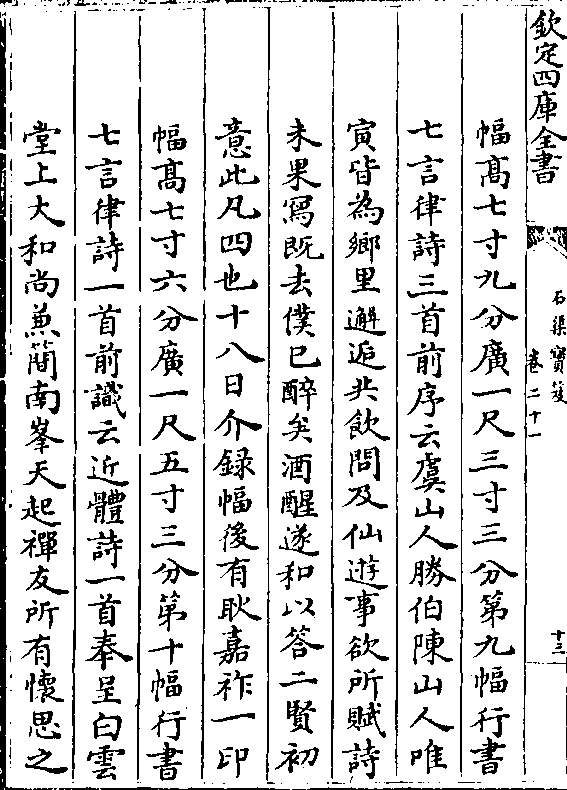 欽定四庫全書
石渠寶笈
卷二十一
十三
幅高七寸九分廣一尺三寸三分第九幅行書
七言律詩三首前序云虞山人勝伯陳山人唯
寅皆為鄉里邂逅共飲問及仙遊事欲所賦詩
未果寫既去僕已醉矣酒醒遂和以答二賢初
意此凡四也十八日介録幅後有耿嘉祚一印
幅髙七寸六分廣一尺五寸三分第十幅行書
七言律詩一首前識云近體詩一首奉呈白雲
堂上大和尚兼簡南峯天起禪友所有懷思之